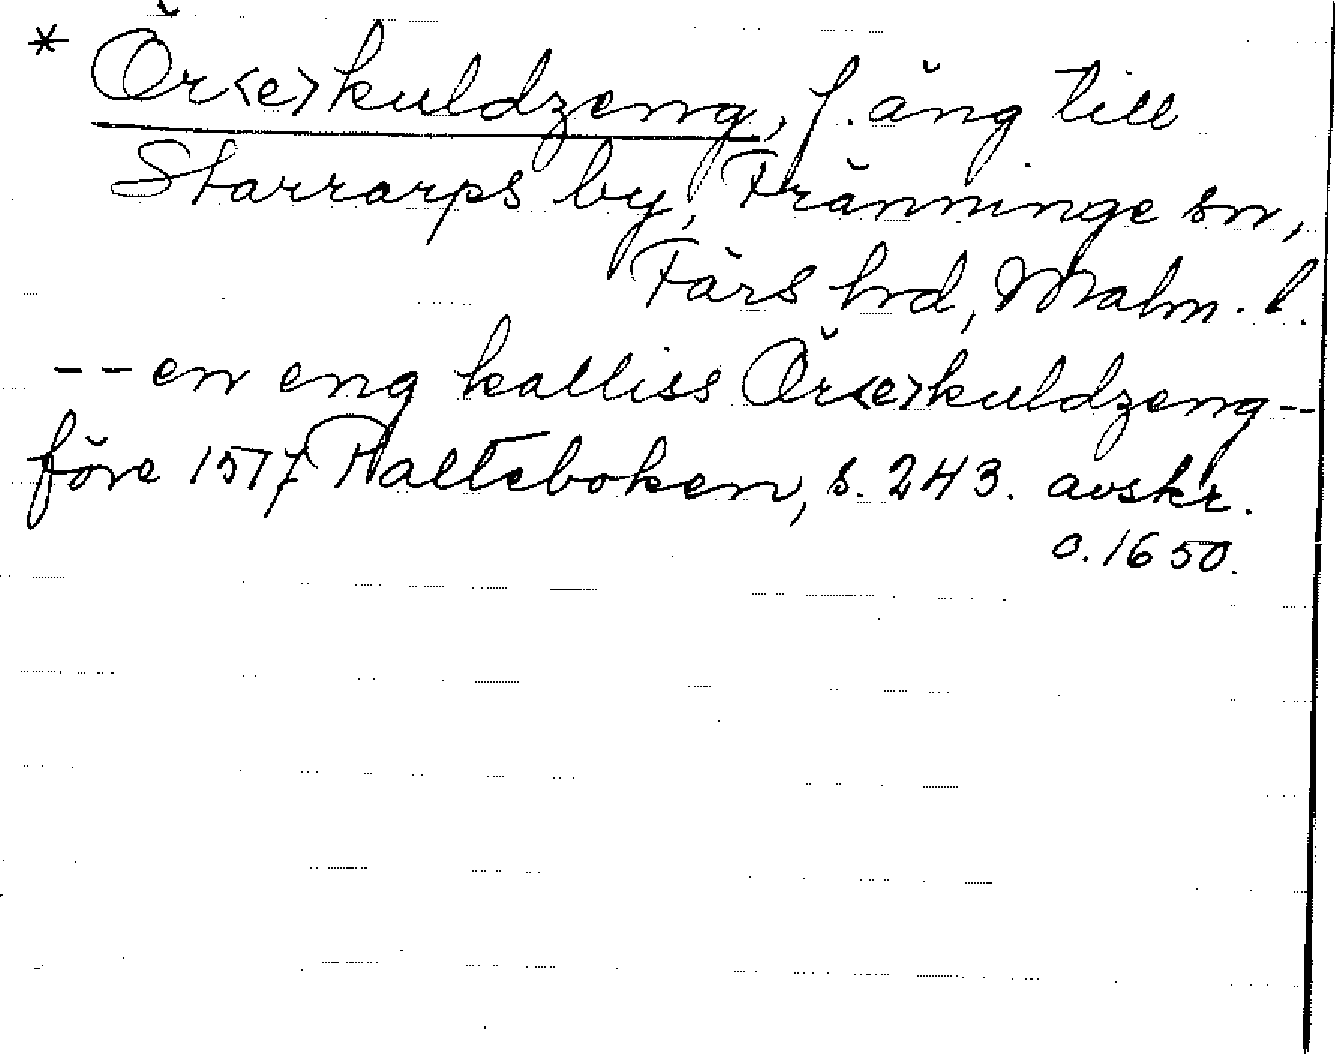 * Ör<e>kuldzeng, f. äng till
Starrarps by, Tränninge sn,
Färs hrd, Malm. l.
-- en eng kalliss Ör<e>kuldzeng --
före 1517 Palteboken, s. 243. avskr.
o. 1650.